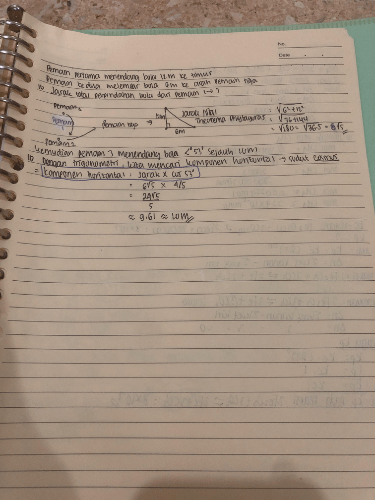 No.
Date
Pemain pertama menendang bola 12 m ke timur
Pemain kedua melempar bola 6m ke arah Pemain tiga
Jarak total perpindahan bola dari pemain 1→
Pemain 1
Pemain tiga
Pemain 2
12m
6m
Jarak total
Theorema Phytagoras
= √6²+12²
= √36+144
= √180 = √36.5 = 6√5
kemudian pemain 3 menendang bola <53° sejauh 10m
Dengan trigonometri, bisa mencari komponen horizontal → sudut cosinus
= komponen horizontal : Jarak x cos 53°
= 6√5 x 4/5
= 24√5
5
≈ 9.61 ≈ 10M